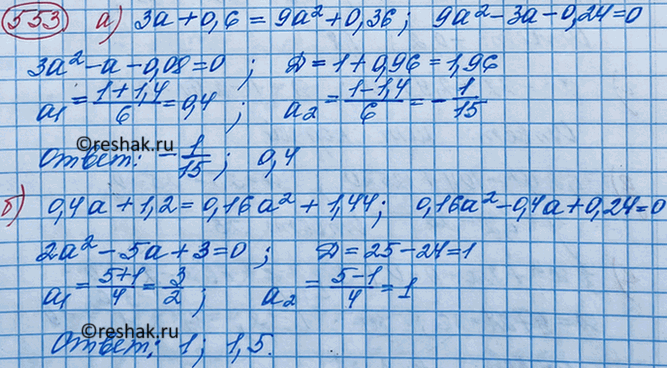 553 а) 3a + 0,6 = 9a² + 0,36; 9a² - 3a - 0,24 = 0
3a² - a - 0,08 = 0; Д = 1 + 0,96 = 1,96
a₁ = (1 + 1,4)/6 = 0,4; a₂ = (1 - 1,4)/6 = -1/15
©reshak.ru
Ответ: -1/15; 0,4
б) 0,4a + 1,2 = 0,16a² + 1,44; 0,16a² - 0,4a + 0,24 = 0
2a² - 5a + 3 = 0; Д = 25 - 24 = 1
a₁ = (5+1)/4 = 3/2; a₂ = (5-1)/4 = 1
©reshak.ru
Ответ: 1; 1,5.